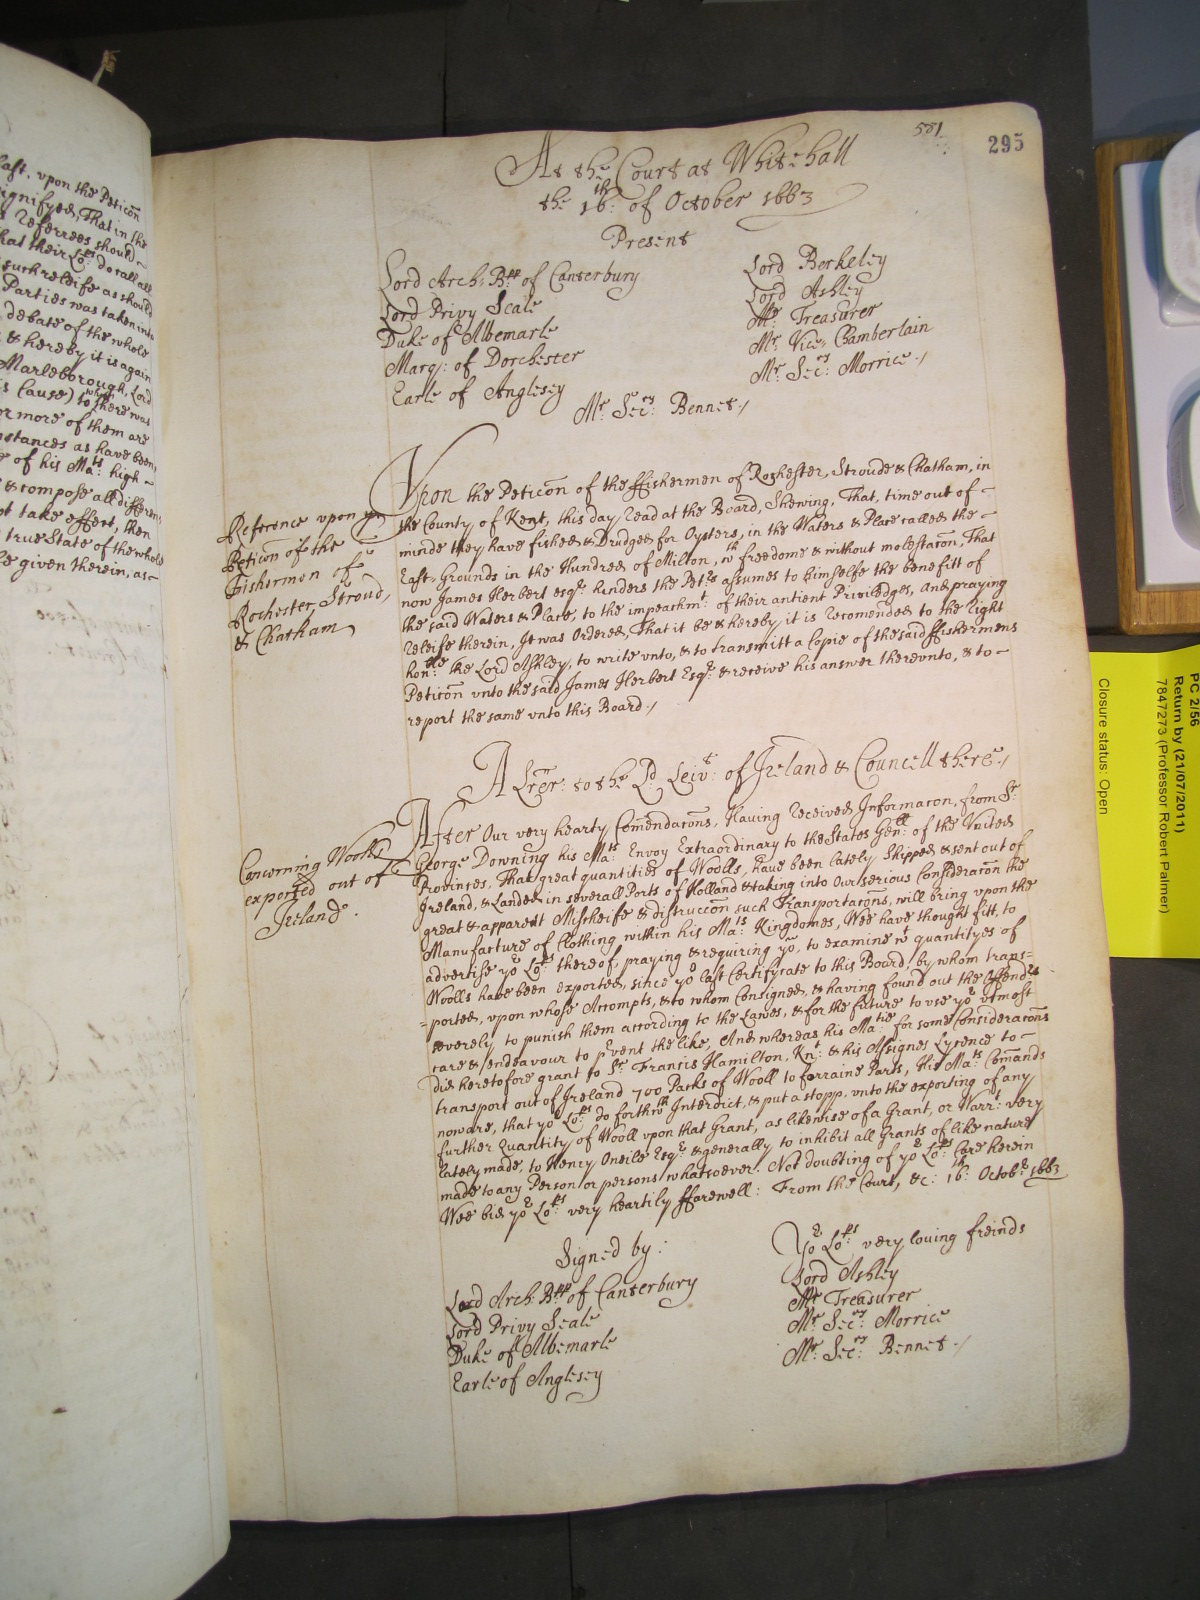 581
295
At the Court at Whitehall
the 16th: of October 1663
Present
Lord Arch: Bpp of Canterbury
Lord Privy Seale
Duke of Albemarle
Marq: of Dorchester
Earle of Anglesey
Lord Berkeley
Lord Ashley
Mr. Treasurer
Mr. Vice-Chamberlain
Mr. Secry: Morrice./
Mr. Secry: Bennet./
Reference upon ye
Peticōn of the
Fishermen of
Rochester, Stroud,
& Chatham
Vpon the Peticōn of the ffishermen of Rochester, Stroude & Chatham, in
the County of Kent, this day Read at the Board, Shewing, That, time out of-
minde they have fished & Drudged for Oysters, in the Waters & Place called the-
East-Grounds in the Hundred of Milton, wth freedome & without molestacōn, That
now James Herbert esqr. hinders the Petrs assumes to himselfe the benefitt of
the said Waters & Place, to the impeachmt. of their antient Priviledges, And praying
Releife therein, It was Ordered, That it be & hereby it is Recomended to the Right
honble: the Lord Ashley, to write vnto, & to transmitt a Copie of the said ffishermens
Peticōn vnto the said James Herbert Esqr. & receive his answer therevnto, & to-
report the same vnto this Board./
A Lrēr: to the Ld. Leivt: of Ireland & Councell there./
Concerning Woolls
exported out of
Ireland.
After Our very hearty Comēndacōns, Having received Informacōn, from Sr.
George Downing his Mats: Envoy Extraordinary to the States Genll: of the Vnited
Provinces, That great quantities of Woolls, have been lately Shipped & sent out of
Ireland, & Landed in severall Ports of Holland & taking into Our serious Consideracōn the
great & apparent Mischeife & distruccōn such Transportacōns, will bring vpon the
Manufacture of Clothing within his Mats: Kingdomes, Wee have thought fitt, to
advertise yor Lopps: thereof, praying & requiring you, to examine wt quantityes of
Woolls have been exported, since yor last Certifycate to this Board, by whom trans=
=ported, vpon whose Attempts, & to whom Consigned, & having found out the Offendrs
severely to punish them according to the Lawes, & for the future to vse yor vtmost
care & endeavour to prvent the like, And whereas his Matie for some Consideracōns
did heretofore grant to Sr. Francis Hamilton, Knt: & his Assignes Lycence to-
transport out of Ireland 700 Packs of Wooll to forraine Parts, His Mats Comānds
now are, that yor Lopps: do forthwth Interdict, & put a stopp, vnto the exporting of any
further Quantity of Wooll vpon that Grant, as likewise of a Grant, or Warrt: very
lately made, to Henry Oneile Esqr. & generally to inhibit all Grants of like nature
made to any Person or persons whatsoever. Not doubting of yor Lopps: Care herein
Wee bid yor Lopps: very heartily ffarewell: From the Court, &c: 16th: Octobr 1663
Yor Lopps: very loving freinds
Signed by:
Lord Arch: Bpp of Canterbury
Lord Privy Seale
Duke of Albemarle
Earle of Anglesey
Lord Ashley
Mr Treasurer
Mr. Secry: Morrice
Mr. Secry: Bennet./
PC 2/56
Return by (21/07/2011)
7847273 (Professor Robert Palmer)
Closure status: Open
last, vpon the Peticōn
signifyed, That in the
Referrees should-
that their Lopps: do call all
such releife as should
Parties was taken into
debate of the whole
& hereby it is again
Marleborough, Lord
Cause) to
or more of them are
stances as have been
of his Mats: high-
& compose all differen
take effect, then
true State of the whole
given therein, as-